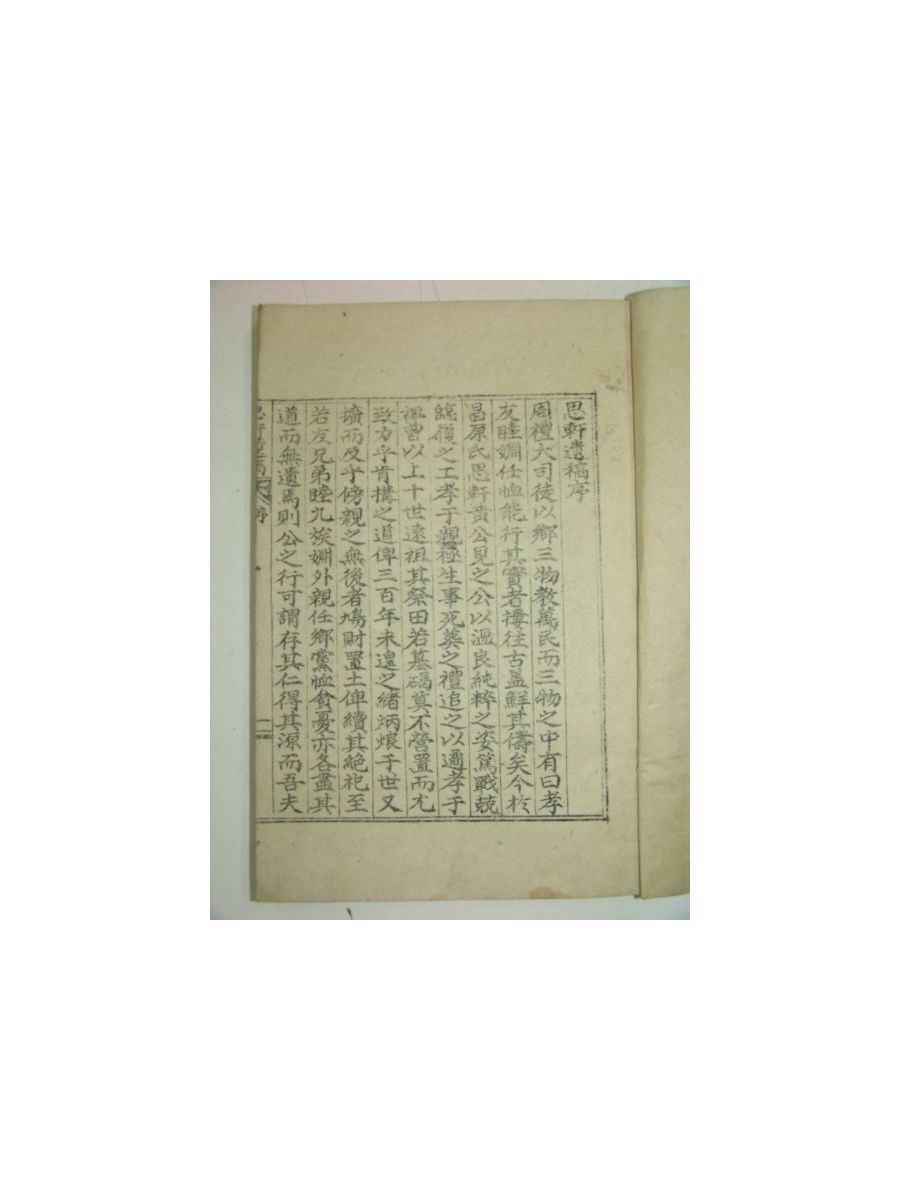 思軒遺稿序
周禮大司徒以鄉三物敎萬民而三物之中有曰孝
友睦婣任恤能行其實者摟往古盖鮮其儔矣今於
昌原氏思軒黃公見之公以溫良純粹之姿篤戰兢
臨履之工孝于親極生事死葬之禮追之以適孝于
祖曾以上十世遠祖其祭田若墓碣莫不營置而尤
致力乎肯搆之道俾三百年未遑之緖炳烺于世又
擴而及乎傍親之無後者鳩財置土俾續其絶祀至
若友兄弟睦九族婣外親任鄕黨恤貧憂亦各盡其
道而無遺焉則公之行可謂存其仁得其源而吾夫
思軒遺稿 序 一